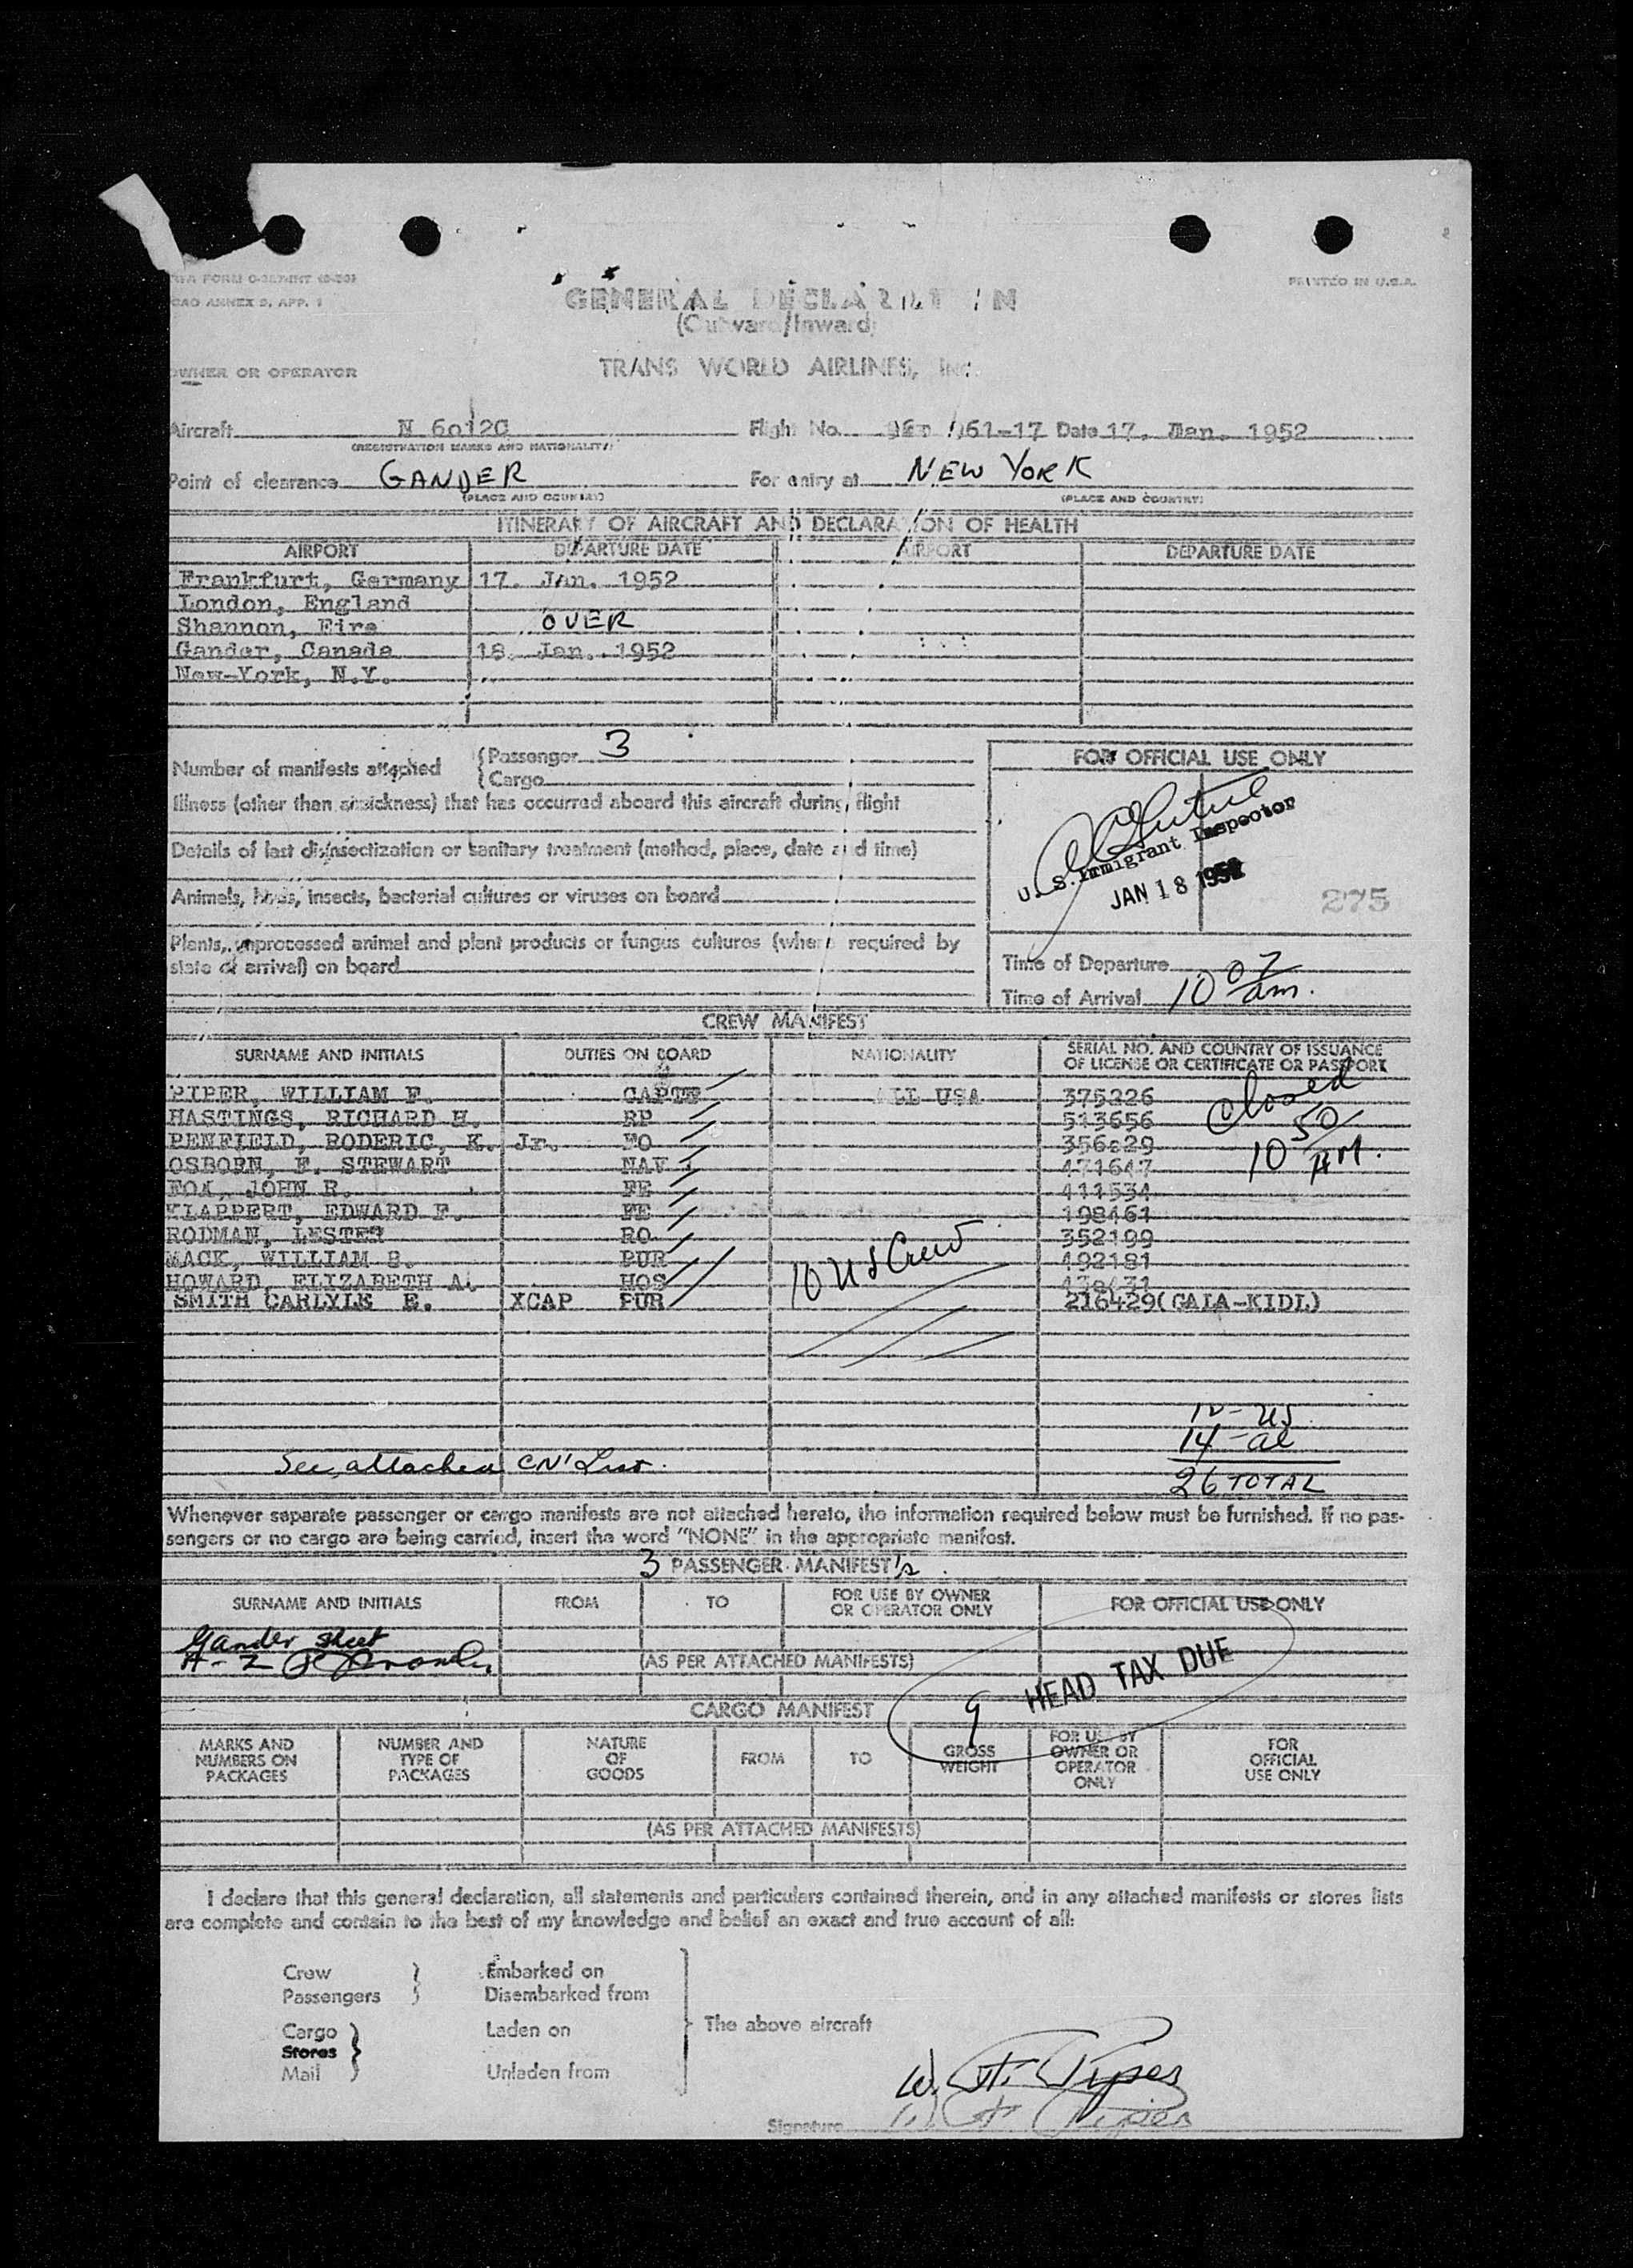 PRINTED IN U.S.A.
GENERAL DECLARATION
(Outward/Inward)
OWNER OR OPERATOR
TRANS WORLD AIRLINES, INC.
Aircraft N 6012C Flight No. 961-17 Date 17. Jan. 1952
(REGISTRATION MARKS AND NATIONALITY)
Point of clearance GANDER For entry at NEW YORK
(PLACE AND COUNTRY) (PLACE AND COUNTRY)
ITINERARY OF AIRCRAFT AND DECLARATION OF HEALTH
AIRPORT DEPARTURE DATE AIRPORT DEPARTURE DATE
Frankfurt, Germany 17. Jan. 1952
London, England
Shannon, Eire OVER
Gander, Canada 18. Jan. 1952
New-York, N.Y.
Number of manifests attached { Passenger 3
{ Cargo
Illness (other than airsickness) that has occurred aboard this aircraft during flight
Details of last disinsectization or sanitary treatment (method, place, date and time)
Animals, birds, insects, bacterial cultures or viruses on board
Plants, unprocessed animal and plant products or fungus cultures (where required by
state of arrival) on board
FOR OFFICIAL USE ONLY
U. S. Immigrant Inspector
JAN 18 1952
275
Time of Departure
Time of Arrival 10 07 am.
CREW MANIFEST
SURNAME AND INITIALS DUTIES ON BOARD NATIONALITY SERIAL NO. AND COUNTRY OF ISSUANCE
OF LICENSE OR CERTIFICATE OR PASSPORT
PIPER, WILLIAM F. CAPTN ALL USA 375226
HASTINGS, RICHARD H. RP 513656
PENFIELD, RODERIC, K. Jr. FO 356829
OSBORN, F. STEWART NAV 471647
FOX, JOHN R. FE 411534
KLAPPERT, EDWARD F. FE 198461
RODMAN, LESTER RO 352199
MACK, WILLIAM S. PUR 492181
HOWARD, ELIZABETH A. HOS
SMITH CARLYLE E. XCAP PUR 216429(GAIA-KIDL)
closed
10 50 AM.
10 US Crew
12 - US
14 - al
26 TOTAL
See attached CN' List.
Whenever separate passenger or cargo manifests are not attached hereto, the information required below must be furnished. If no pas-
sengers or no cargo are being carried, insert the word "NONE" in the appropriate manifest.
3 PASSENGER MANIFEST's
SURNAME AND INITIALS FROM TO FOR USE BY OWNER
OR OPERATOR ONLY FOR OFFICIAL USE ONLY
Gander sheet
A-Z
(AS PER ATTACHED MANIFESTS)
9 HEAD TAX DUE
CARGO MANIFEST
MARKS AND
NUMBERS ON
PACKAGES
NUMBER AND
TYPE OF
PACKAGES
NATURE
OF
GOODS
FROM
TO
GROSS
WEIGHT
FOR USE BY
OWNER OR
OPERATOR
ONLY
FOR
OFFICIAL
USE ONLY
(AS PER ATTACHED MANIFESTS)
I declare that this general declaration, all statements and particulars contained therein, and in any attached manifests or stores lists
are complete and contain to the best of my knowledge and belief an exact and true account of all:
Crew } Embarked on
Passengers } Disembarked from
Cargo } Laden on
Stores }
Mail } Unladen from
The above aircraft
W. F. Piper
Signature W. F. Piper